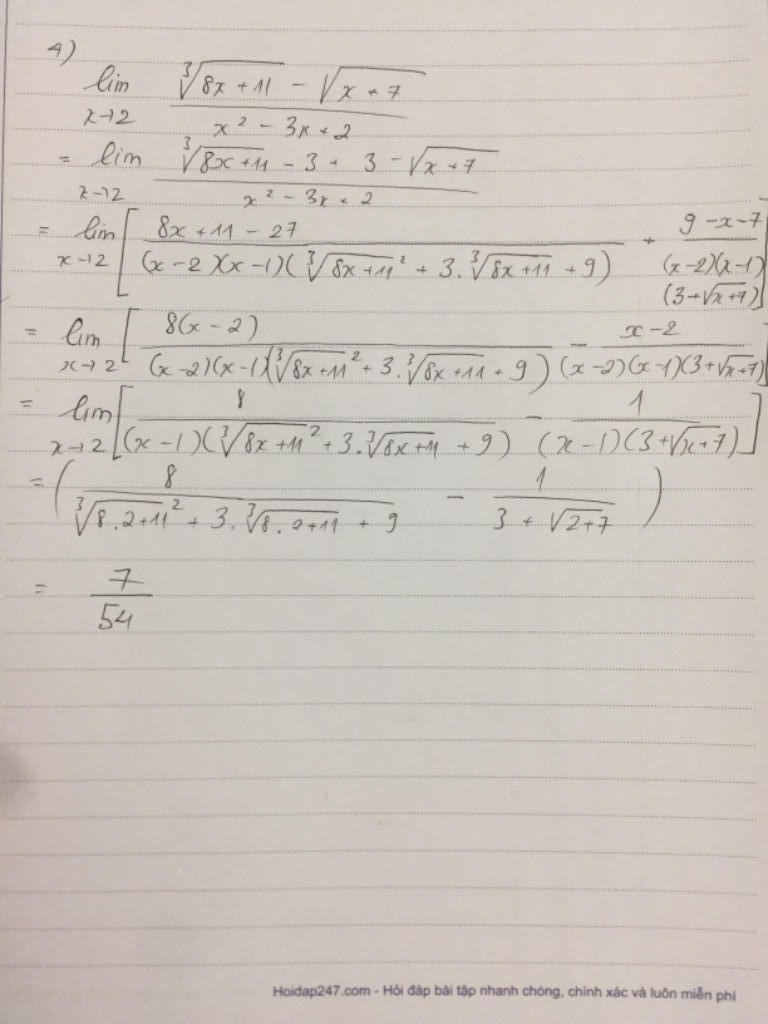 4)
lim x→2 (∛(8x + 11) - √(x + 7)) / (x² - 3x + 2)
= lim x→2 (∛(8x + 11) - 3 + 3 - √(x + 7)) / (x² - 3x + 2)
= lim x→2 [ (8x + 11 - 27) / ((x - 2)(x - 1)(∛(8x + 11)² + 3.∛(8x + 11) + 9)) + (9 - x - 7) / ((x - 2)(x - 1)(3 + √(x + 7))) ]
= lim x→2 [ 8(x - 2) / ((x - 2)(x - 1)(∛(8x + 11)² + 3.∛(8x + 11) + 9)) - (x - 2) / ((x - 2)(x - 1)(3 + √(x + 7))) ]
= lim x→2 [ 8 / ((x - 1)(∛(8x + 11)² + 3.∛(8x + 11) + 9)) - 1 / ((x - 1)(3 + √(x + 7))) ]
= ( 8 / (∛(8.2 + 11)² + 3.∛(8.2 + 11) + 9) - 1 / (3 + √(2 + 7)) )
= 7 / 54
Hoidap247.com - Hỏi đáp bài tập nhanh chóng, chính xác và luôn miễn phí